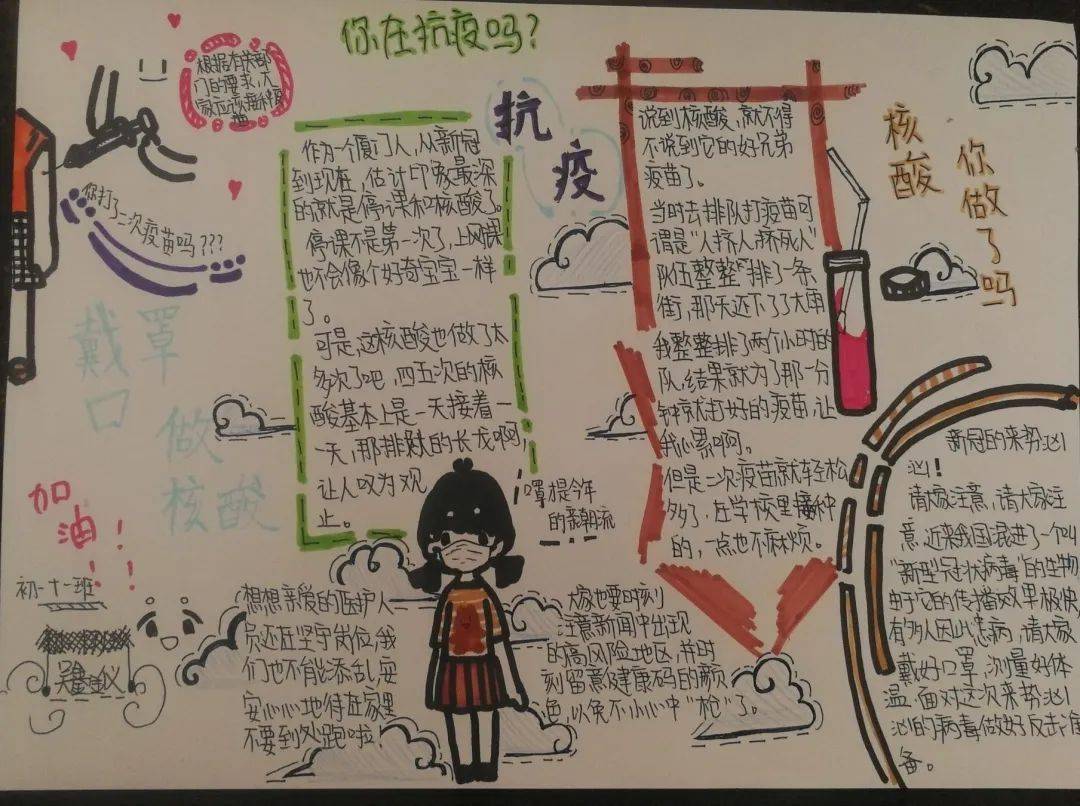 你在抗疫吗？
根据有关部
门的要求，大
家应该接种疫
苗
你打了二次疫苗吗？？？
戴口罩
做核酸
加油！！！
初一十一班
抗疫
作为一个厦门人，从新冠
到现在，估计印象最深
的就是停课和核酸了。
停课不是第一次了，上网课
也不会像个好奇宝宝一样
了。
可是，这核酸也做了太
多次了吧，四五次的核
酸基本上是一天接着一
天，那排队的长龙啊，
让人叹为观
止。
说到核酸，就不得
不说到它的好兄弟
疫苗了。
当时去排队打疫苗可
谓是“人挤人，挤死人”
队伍整整排了一条
街，那天还下了大雨
我整整排了两个小时的
队，结果就为了那一分
钟就打好的疫苗，让
我心累啊。
但是二次疫苗就轻松
多了，在学校里接种
的，一点也不麻烦。
核酸
你做了吗
罩提今年
的新潮流
想想亲爱的医护人
员还在坚守岗位，我
们也不能添乱，安
安心心地待在家里
不要到外跑啦！
大家也要时刻
注意新闻中出现
的高风险地区，并时
刻留意健康码的颜
色，以免不小心中“枪”了。
新冠的来势汹
汹！
请大家注意，请大家注
意，近来我国混进了一个叫
“新型冠状病毒”的生物
由于它的传播效果极快
有多人因此患病，请大家
戴好口罩，测量好体
温，面对这次来势汹
汹的病毒做好反击准
备。